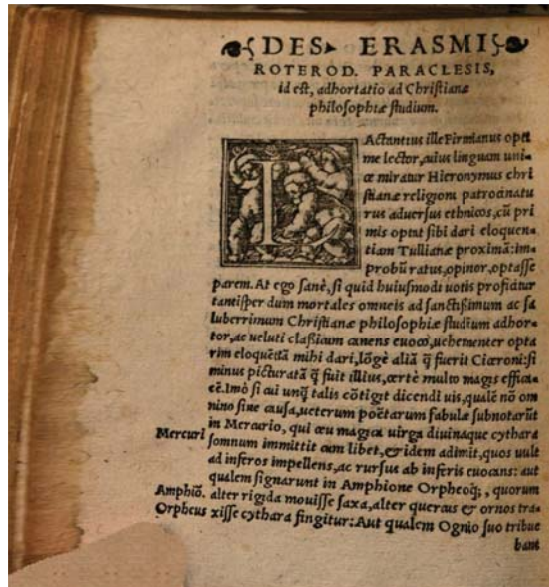 DES. ERASMI
ROTEROD. PARACLESIS,
id est, adhortatio ad Christianæ
philosophiæ studium.
LActantius ille Firmianus opti
me lector, cuius linguam uni-
ce miratur Hieronymus chri
stianæ religioni patrocinatu
rus aduersus ethnicos, cũ pri
mis optat sibi dari eloquen-
tiam Tullianæ proximã: im-
probũ ratus, opinor, optasse
parem. At ego sanè, si quid huiusmodi uotis proficitur
tantisper dum mortales omneis ad sanctissimum ac sa
luberrimum Christianæ philosophiæ studium adhor-
tor, ac ueluti classicum canens euoco, uehementer opta
rim eloquẽtiã mihi dari, lõgè aliã q̃ fuerit Ciceroni: si
minus picturatã q̃ fuit illius, certè multo magis effica-
cẽ. Imò si cui unq̃ talis cõtigit dicendi uis, qualẽ nõ om
nino sine causa, ueterum poëtarum fabulæ subnotarũt
in Mercurio, qui ceu magica uirga diuinaque cythara
Mercuri
somnum immittit cum libet, & idem adimit, quos uult
ad inferos impellens, ac rursus ab inferis euocans: aut
qualem signarunt in Amphione Orpheoq́;, quorum
Amphiõ. alter rigida mouisse saxa, alter quercus & ornos tra-
Orpheus xisse cythara fingitur: Aut qualem Ognio suo tribue
bant